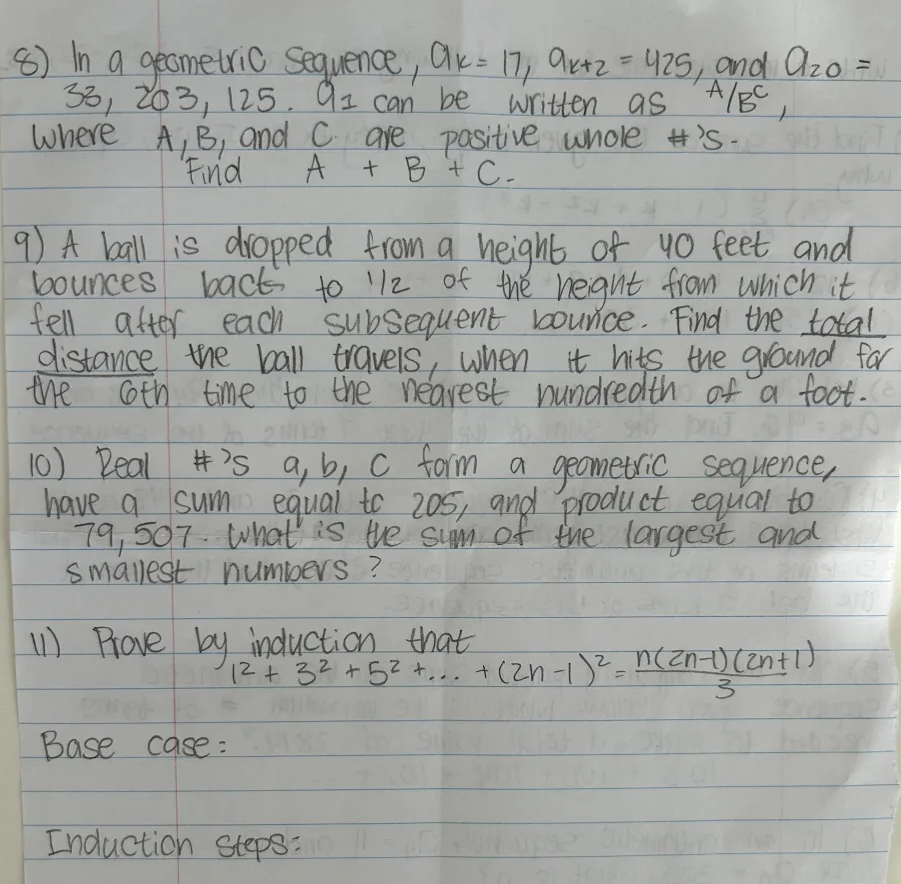 8) In a geometric sequence, aₖ = 17, aₖ₊₂ = 425, and a₂₀ =
33, 203, 125. a₁ can be written as A/Bᶜ,
where A, B, and C are positive whole #'s.
Find A + B + C.
9) A ball is dropped from a height of 40 feet and
bounces back to 1/2 of the height from which it
fell after each subsequent bounce. Find the total
distance the ball travels, when it hits the ground for
the 6th time to the nearest hundredth of a foot.
10) Real #'s a, b, c form a geometric sequence,
have a sum equal to 205, and product equal to
79,507. What is the sum of the largest and
smallest numbers?
11) Prove by induction that
1² + 3² + 5² + ... + (2n-1)² = n(2n-1)(2n+1)/3
Base case:
Induction steps: